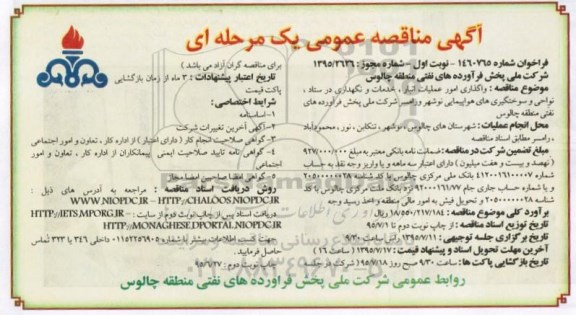 آگهی مناقصه عمومی یک مرحله ای
فراخوان شماره ۱۴۶۰۷۶۵ - نوبت اول - شماره مجوز : ۱۳۹۵/۲۶۳۶
شرکت ملی پخش فرآورده های نفتی منطقه چالوس
موضوع مناقصه : واگذاری امور عملیات انبار ، خدمات و نگهداری در ستاد ،
نواحی و سوختگیری های هواپیمایی نوشهر و رامسر شرکت ملی پخش فرآورده های
نفتی منطقه چالوس
محل انجام عملیات : شهرستان های چالوس ، نوشهر ، تنکابن ، نور ، محمودآباد
، رامسر مطابق اسناد مناقصه
مبلغ تضمین شرکت در مناقصه : ضمانت نامه بانکی معتبر به مبلغ ۹۲۷/۰۰۰/۰۰۰
(نهصد و بیست و هفت میلیون) دارای اعتبار سه ماهه و یا واریز وجه نقد به حساب
۴۱۲۰۰۱۶۱۰۰۰۷ بانک ملی مرکزی چالوس با کد شناسه ۲۰۵۰۰۰۰۰۰۲۸
و یا شماره حساب جاری جام ۹۲۰۰۰۱۶۱/۷۷ نزد بانک ملت مرکزی چالوس با کد
۲۰۵۰۰۰۰۰۰۲۸ و تحویل فیش به امور مالی منطقه و اخذ رسید وجه
برآورد کلی موضوع مناقصه : ۱۸/۵۵۰/۲۱۷/۱۸۴ ریال
تاریخ توزیع اسناد مناقصه : از چاپ نوبت دوم تا ۹۵/۷/۱
تاریخ برگزاری جلسه توجیهی : ۱۳۹۵/۷/۱۱ راس ساعت ۹/۳۰
آخرین مهلت تحویل اسناد و پیشنهاد قیمت : ۱۳۹۵/۷/۱۷ (ساعت ۱۶)
تاریخ بازگشایی پاکت ها : ساعت ۹/۳۰ صبح روز ۹۵/۷/۱۸ (شرکت در جلسه
برای مناقصه گران آزاد می باشد)
تاریخ اعتبار پیشنهادات : ۳ ماه از زمان بازگشایی
پاکت قیمت
شرایط اختصاصی :
۱- اساسنامه
۲- آگهی آخرین تغییرات شرکت
۳- گواهی صلاحیت انجام کار (دارای اعتبار) از اداره کار ، تعاون و امور اجتماعی
۴- گواهی نامه تایید صلاحیت ایمنی پیمانکاران از اداره کار ، تعاون و امور
اجتماعی
۵- گواهی امضا صاحبین امضا مجاز
روش دریافت اسناد مناقصه : مراجعه به آدرس های ذیل :
WWW.NIOPDC.IR – HTTP://CHALOOS.NIOPDC.IR
دریافت اسناد پس از چاپ نوبت دوم از سایت : – HTTP://IETS.MPORG.IR
HTTP://MONAGHESE.DPORTAL.NIOPDC.IR
جهت کسب اطلاعات بیشتر با شماره ۰۱۱۵۲۲۵۶۹۰۵ داخلی ۳۴۶ یا ۳۲۳ تماس
حاصل فرمایید.
نوبت دوم : ۹۵/۶/۲۷
روابط عمومی شرکت ملی پخش فرآورده های نفتی منطقه چالوس